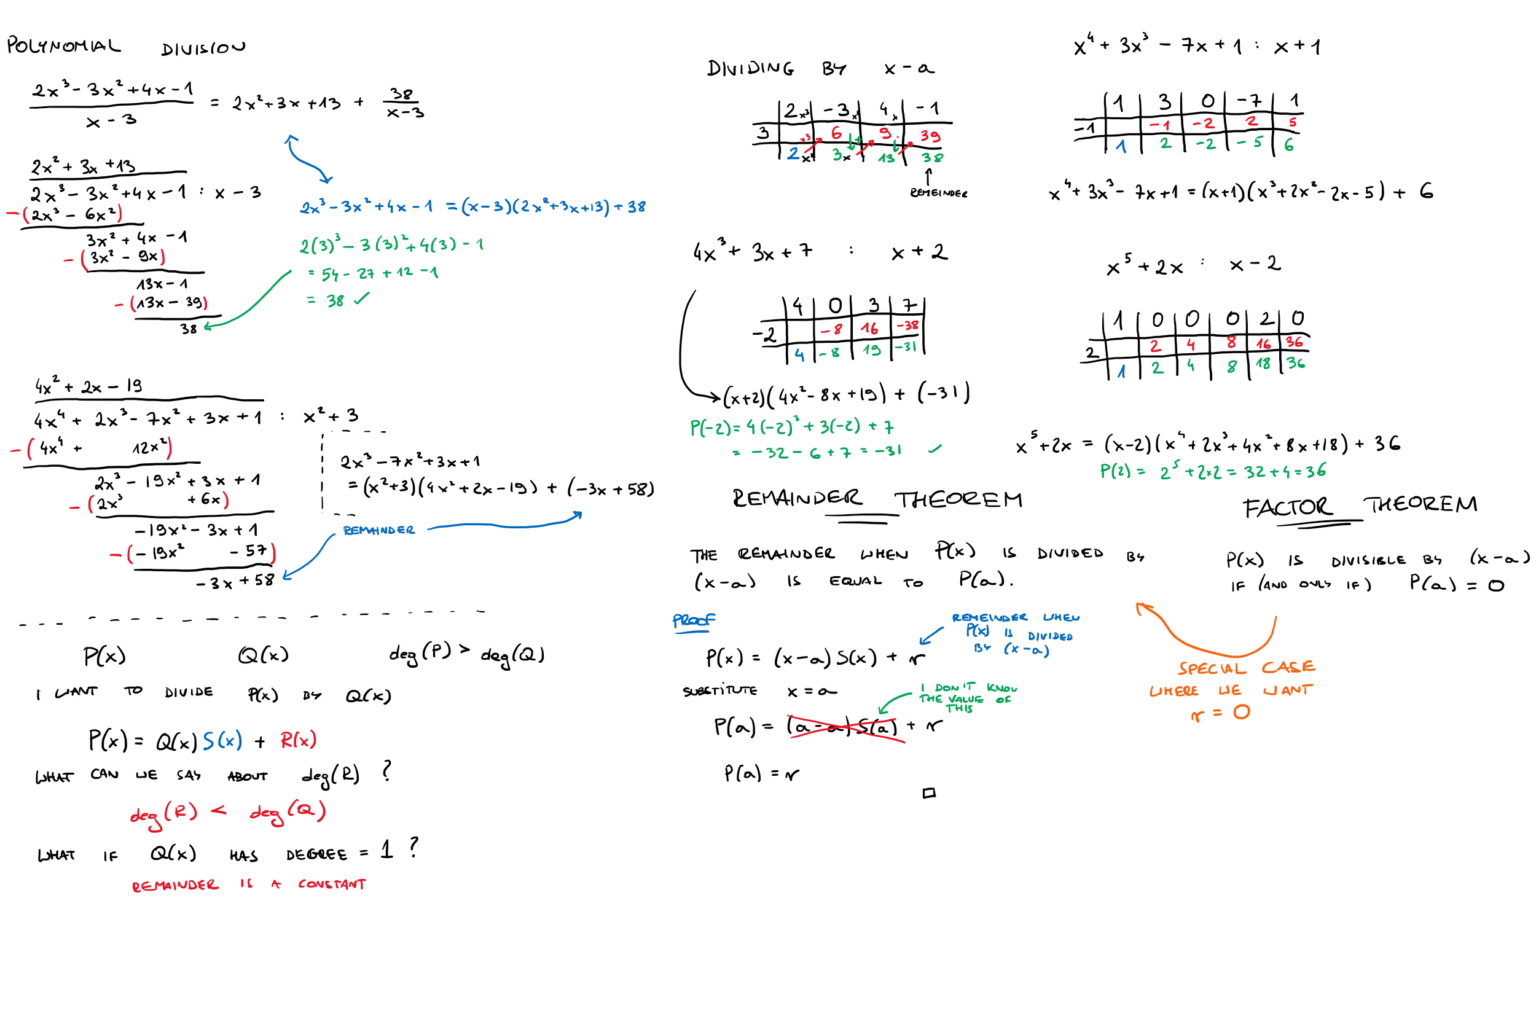 POLYNOMIAL DIVISION
2x³ - 3x² + 4x - 1 / x - 3 = 2x² + 3x + 13 + 38 / x - 3
2x² + 3x + 13
2x³ - 3x² + 4x - 1 : x - 3
- (2x³ - 6x²)
3x² + 4x - 1
- (3x² - 9x)
13x - 1
- (13x - 39)
38
2x³ - 3x² + 4x - 1 = (x - 3)(2x² + 3x + 13) + 38
2(3)³ - 3(3)² + 4(3) - 1
= 54 - 27 + 12 - 1
= 38 ✓
4x² + 2x - 19
4x⁴ + 2x³ - 7x² + 3x + 1 : x² + 3
- (4x⁴ + 12x²)
2x³ - 19x² + 3x + 1
- (2x³ + 6x)
-19x² - 3x + 1
- (-19x² - 57)
-3x + 58
2x³ - 7x² + 3x + 1
= (x² + 3)(4x² + 2x - 19) + (-3x + 58)
REMAINDER
P(x) Q(x) deg(P) > deg(Q)
I WANT TO DIVIDE P(x) BY Q(x)
P(x) = Q(x) S(x) + R(x)
WHAT CAN WE SAY ABOUT deg(R) ?
deg(R) < deg(Q)
WHAT IF Q(x) HAS DEGREE = 1 ?
REMAINDER IS A CONSTANT
DIVIDING BY x - a
2x³ -3x² 4x -1
3 x³ 6 9 39
2x² 3x 13 38
REMEINDER
4x³ + 3x + 7 : x + 2
4 0 3 7
-2 -8 16 -38
4 -8 19 -31
(x+2)(4x² - 8x + 19) + (-31)
P(-2) = 4(-2)³ + 3(-2) + 7
= -32 - 6 + 7 = -31 ✓
REMAINDER THEOREM
THE REMAINDER WHEN P(x) IS DIVIDED BY
(x-a) IS EQUAL TO P(a).
PROOF
REMEINDER WHEN
P(x) IS DIVIDED
BY (x-a)
P(x) = (x-a) S(x) + r
SUBSTITUTE x = a
I DON'T KNOW
THE VALUE OF
THIS
P(a) = (a-a) S(a) + r
P(a) = r
□
x⁴ + 3x³ - 7x + 1 : x + 1
1 3 0 -7 1
-1 -1 -2 2 5
1 2 -2 -5 6
x⁴ + 3x³ - 7x + 1 = (x+1)(x³ + 2x² - 2x - 5) + 6
x⁵ + 2x : x - 2
1 0 0 0 2 0
2 2 4 8 16 36
1 2 4 8 18 36
x⁵ + 2x = (x-2)(x⁴ + 2x³ + 4x² + 8x + 18) + 36
P(2) = 2⁵ + 2×2 = 32 + 4 = 36
FACTOR THEOREM
P(x) IS DIVISIBLE BY (x-a)
IF (AND ONLY IF) P(a) = 0
SPECIAL CASE
WHERE WE WANT
r = 0